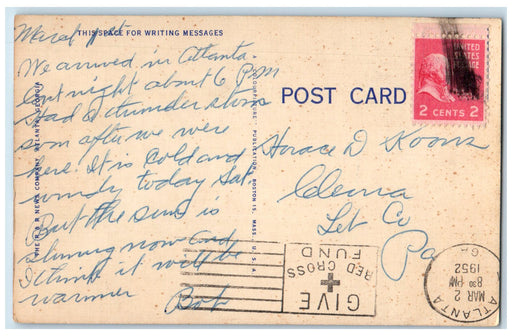 THIS SPACE FOR WRITING MESSAGES
March 1st
We arrived in Atlanta
last night about 6 P.M
Had a thunder storm
soon after we were
here. It is Cold and
windy today Sat.
But the sun is
shining now and
I think it will be
warmer
Bob
THE R & R NEWS COMPANY, ATLANTA, GEORGIA
PUBLICATION, BOSTON 15, MASS., U. S. A.
POST CARD
UNITED
STATES
POSTAGE
2 CENTS 2
Horace D. Koons
Lehi Co
Pa
GIVE
RED CROSS
FUND
ATLANTA
GA.
MAR 2
8 30 PM
1952